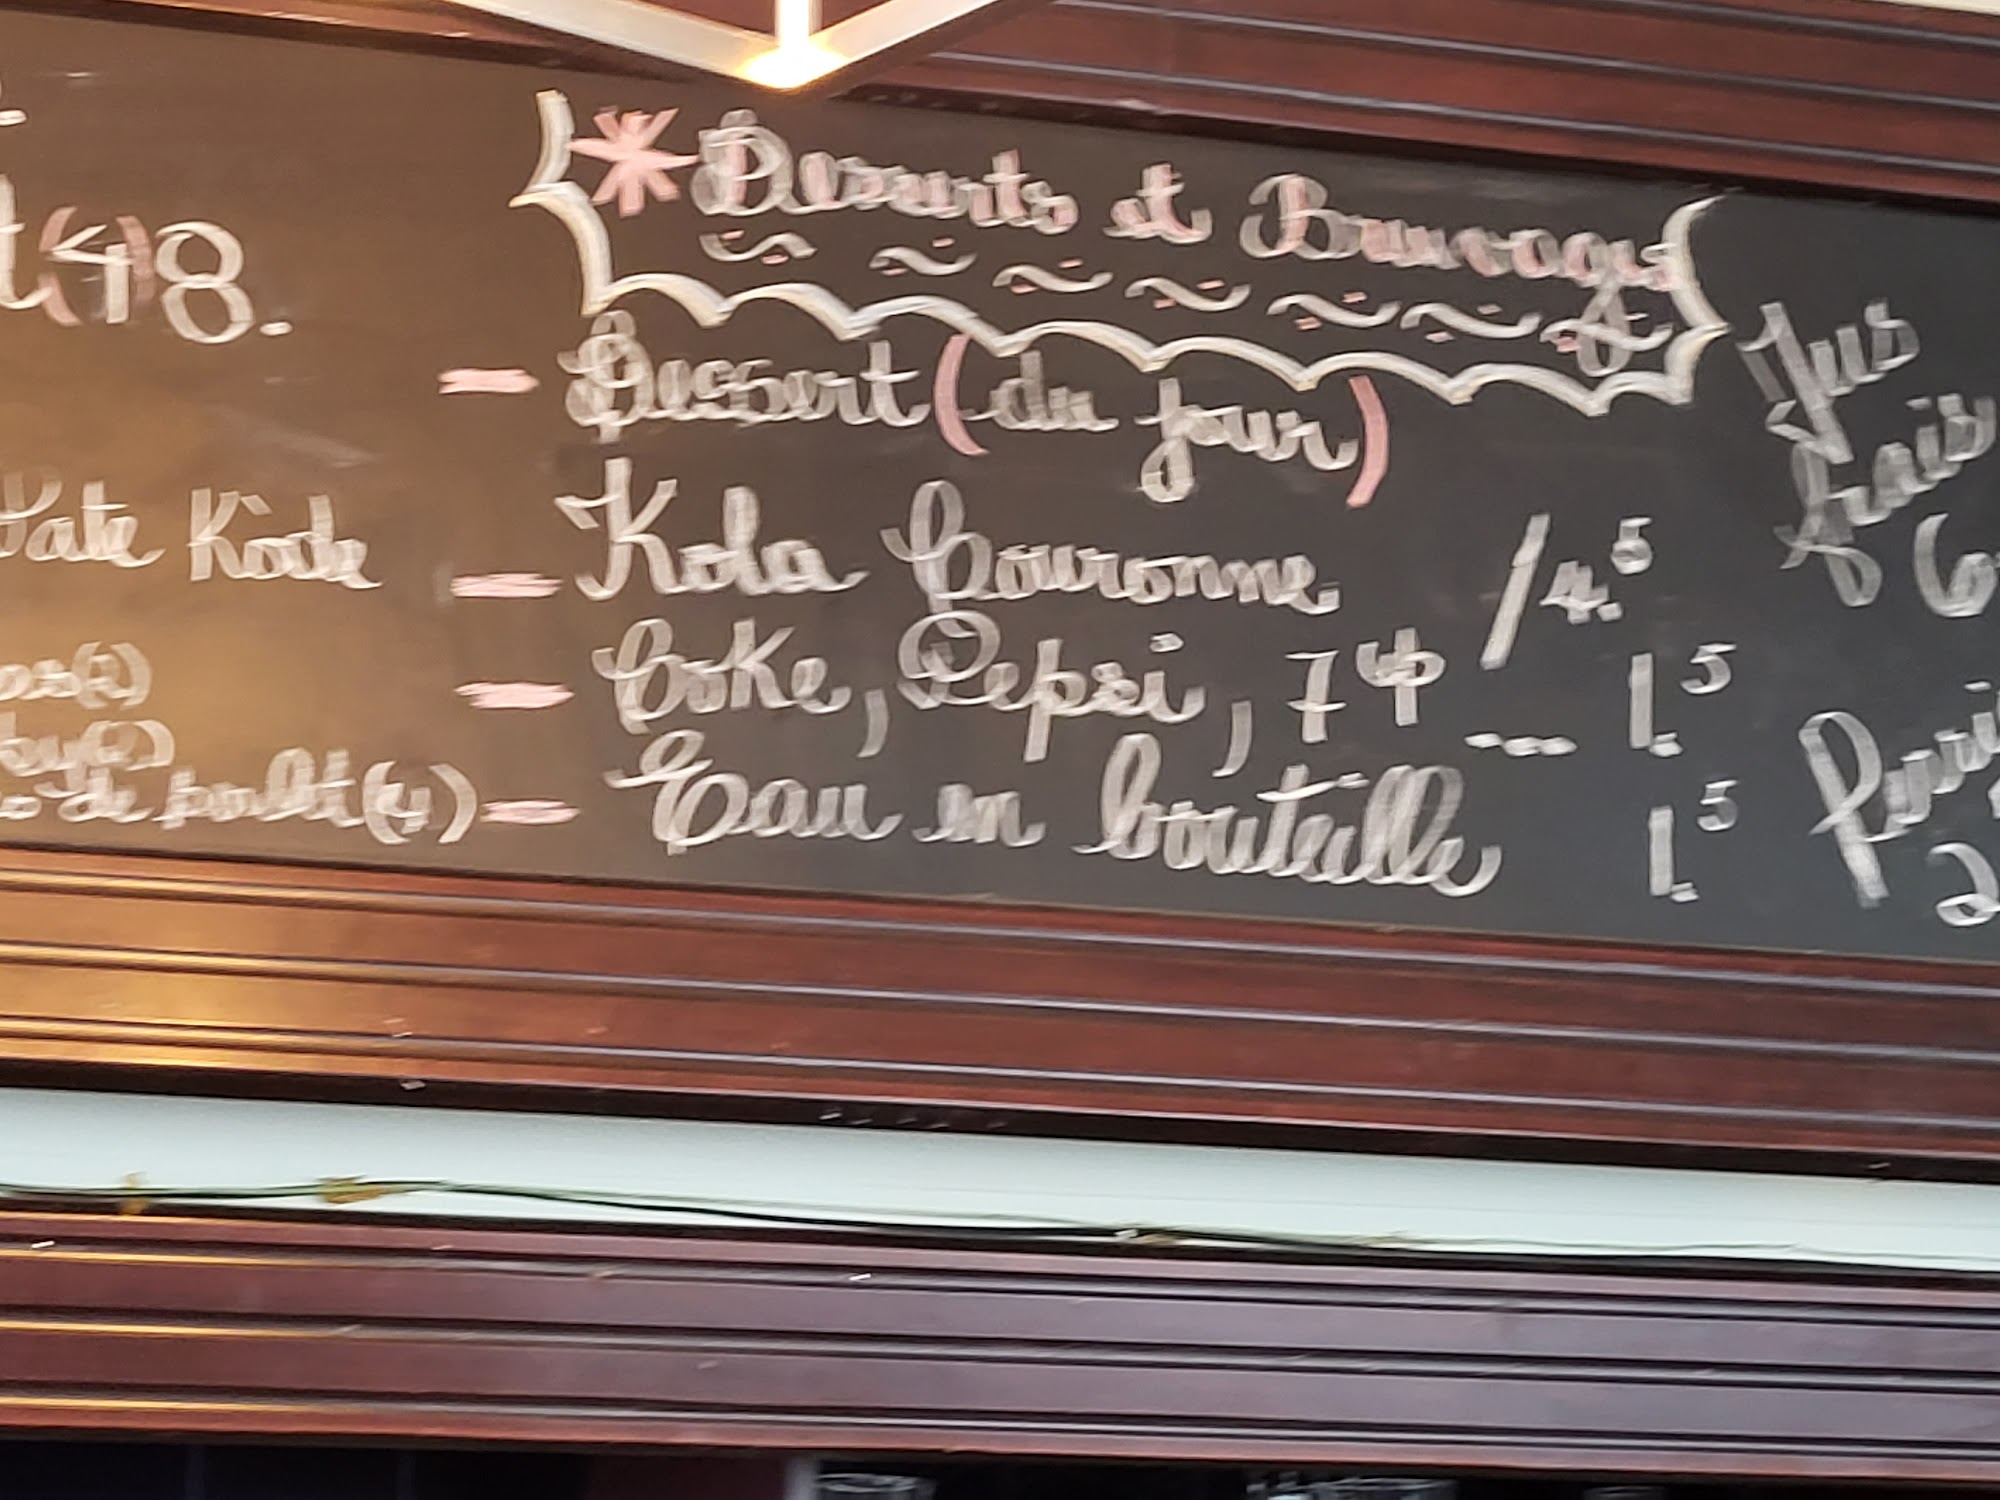 t(4) 8.
Pate Kòde
de poulet(4)
* Desserts et Breuvages
- Dessert (du jour)
- Kola Couronne / 4.5
- Coke, Pepsi, 7up --- 1.5
- Eau en bouteille 1.5
Jus
frais
6
2